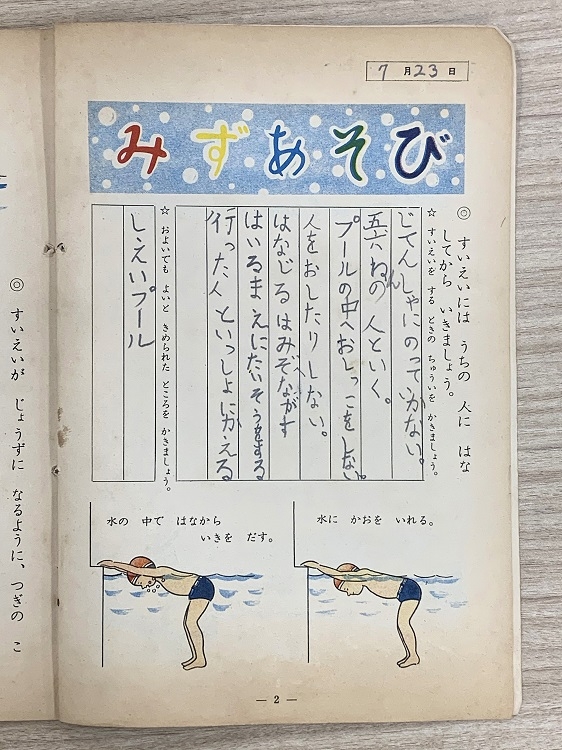 7月23日
みずあそび
◎ すいえいには うちの 人に はな
してから いきましょう。
☆ すいえいを する ときの ちゅういを かきましょう。
じてんしゃにのっていかない。
五六ねんの人といく。
プールの中へおしっこをしない。
人をおしたりしない。
はなじるはみぞへながす
はいるまえにたいそうをする
行った人といっしょにかえる
☆ およいでも よいと きめられた ところを かきましょう。
しえいプール
水に かおを いれる。
水の 中で はなから
いきを だす。
— 2 —
◎ すいえいが じょうずに なるように、つぎの こ